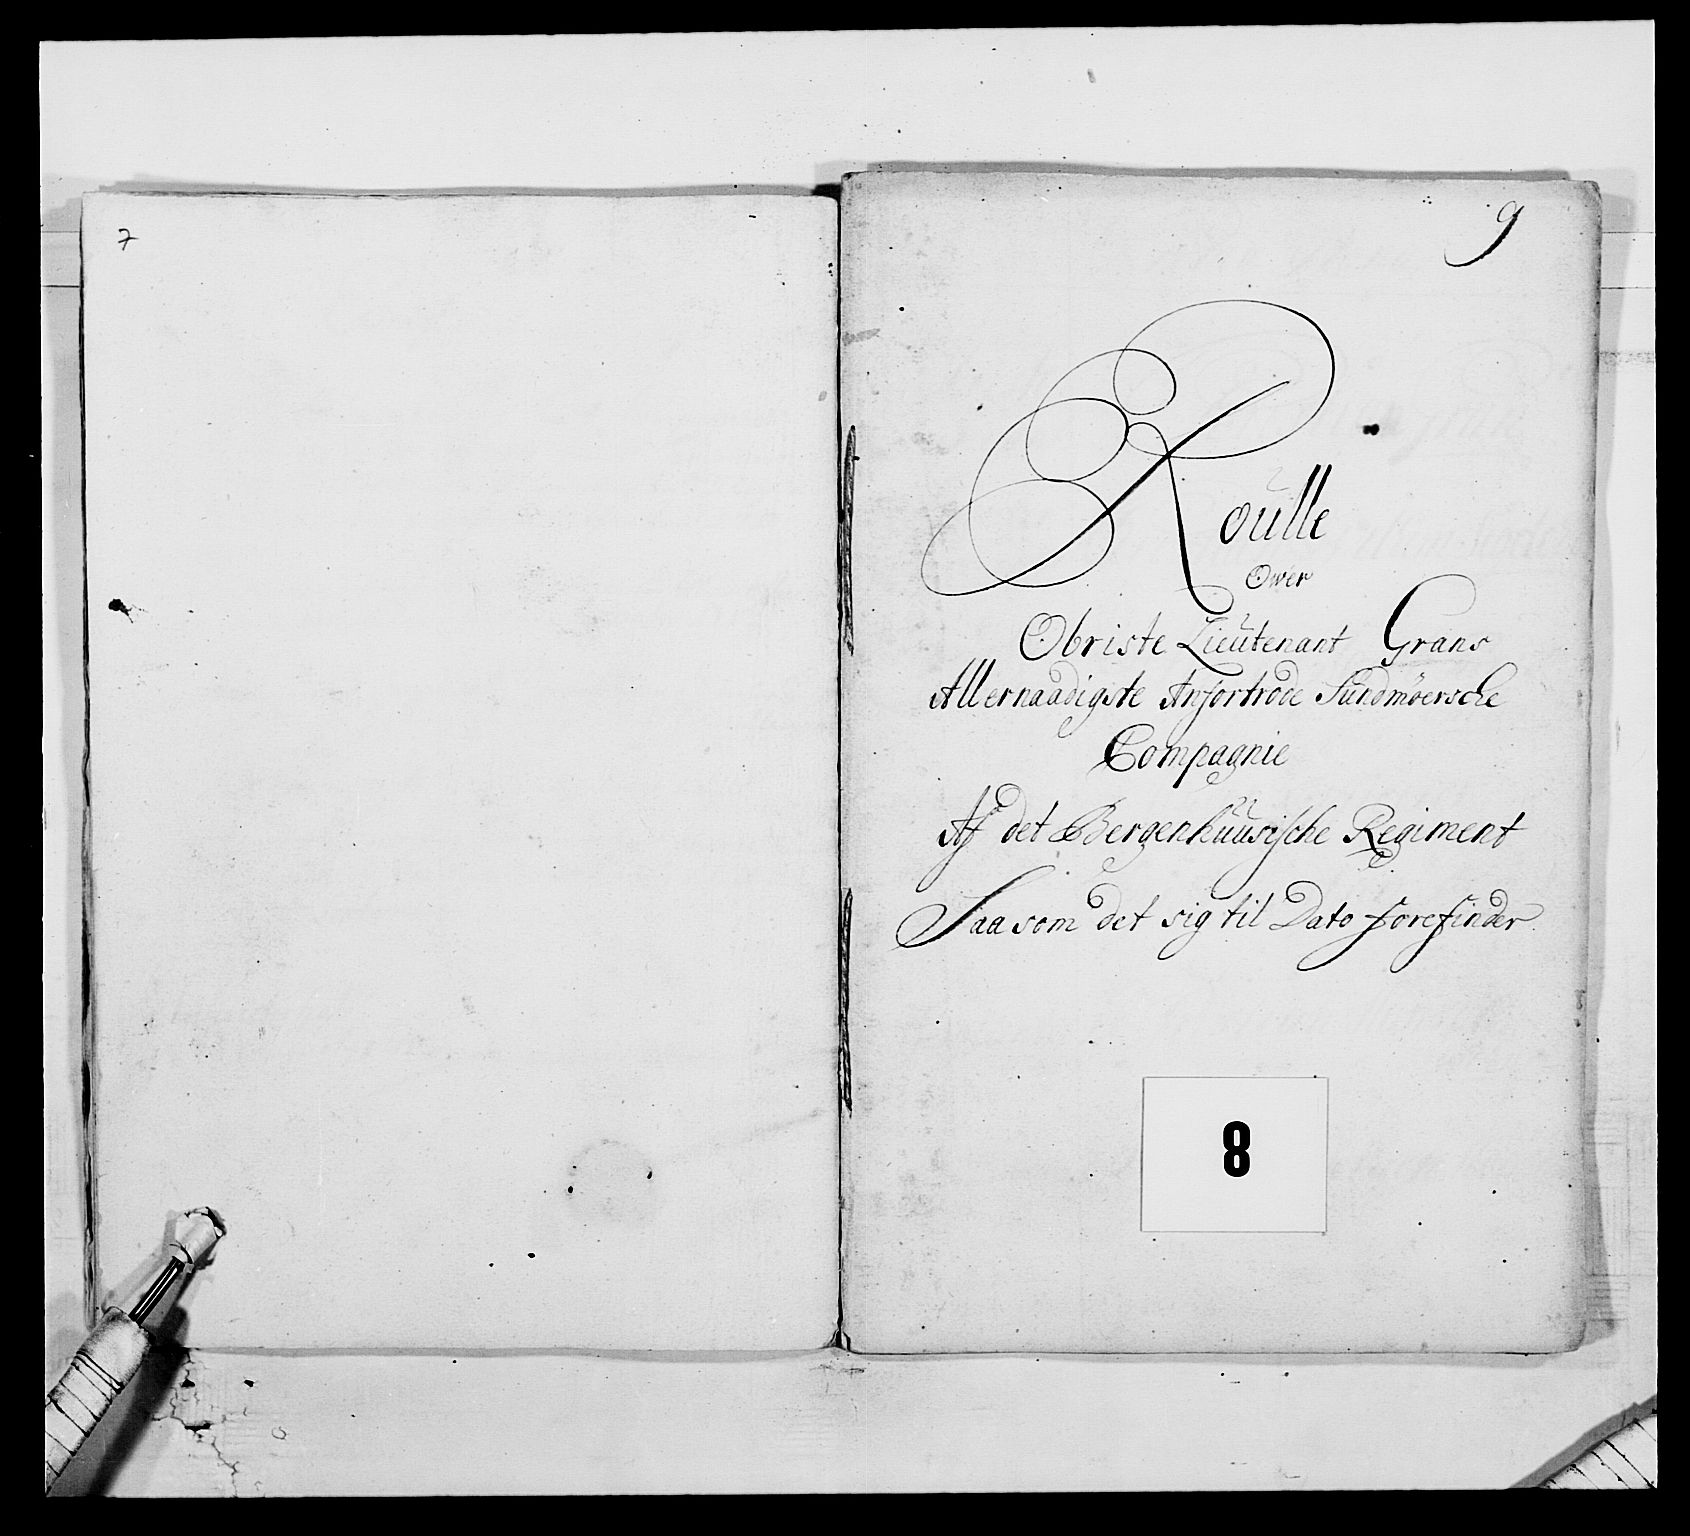 7
9
Roülle
Ower
Obriste Lieütenant Grans
Allernaadigste Anfortrode Sündmöersche
Compagnie
Af det Bergenhüüsische Regiment
Saasom det sig til Dato forefinder
8